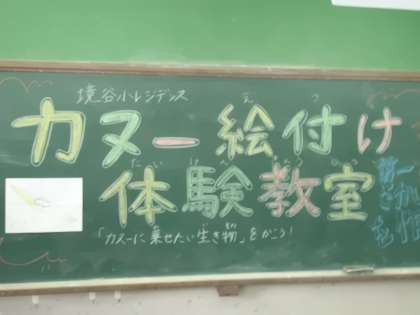 境谷小レジデンス
カヌー絵付け
体験教室
「カヌーに乗せたい生き物」をかこう!